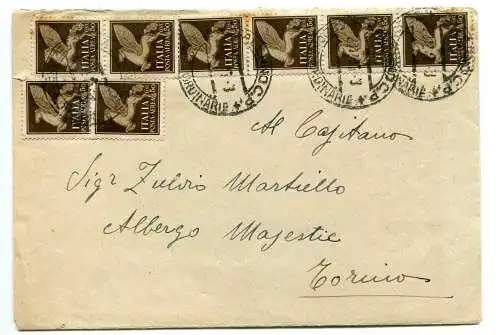 ITALIA ITALIA ITALIA ITALIA ITALIA ITALIA
ITALIA ITALIA
ORDINARIE
Al Capitano
Sigr Fulvio Martiello
Albergo Majestic
Torino